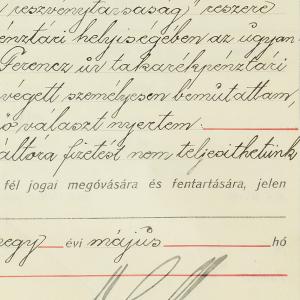 részvénytársaság) részére
pénztári helyiségében az ugyan
Ferencz úr takarékpénztári
végett személyesen bemutattam,
választ nyertem:
váltóra fizetést nem teljesithetünk
fél jogai megóvására és fentartására, jelen
négy évi május hó